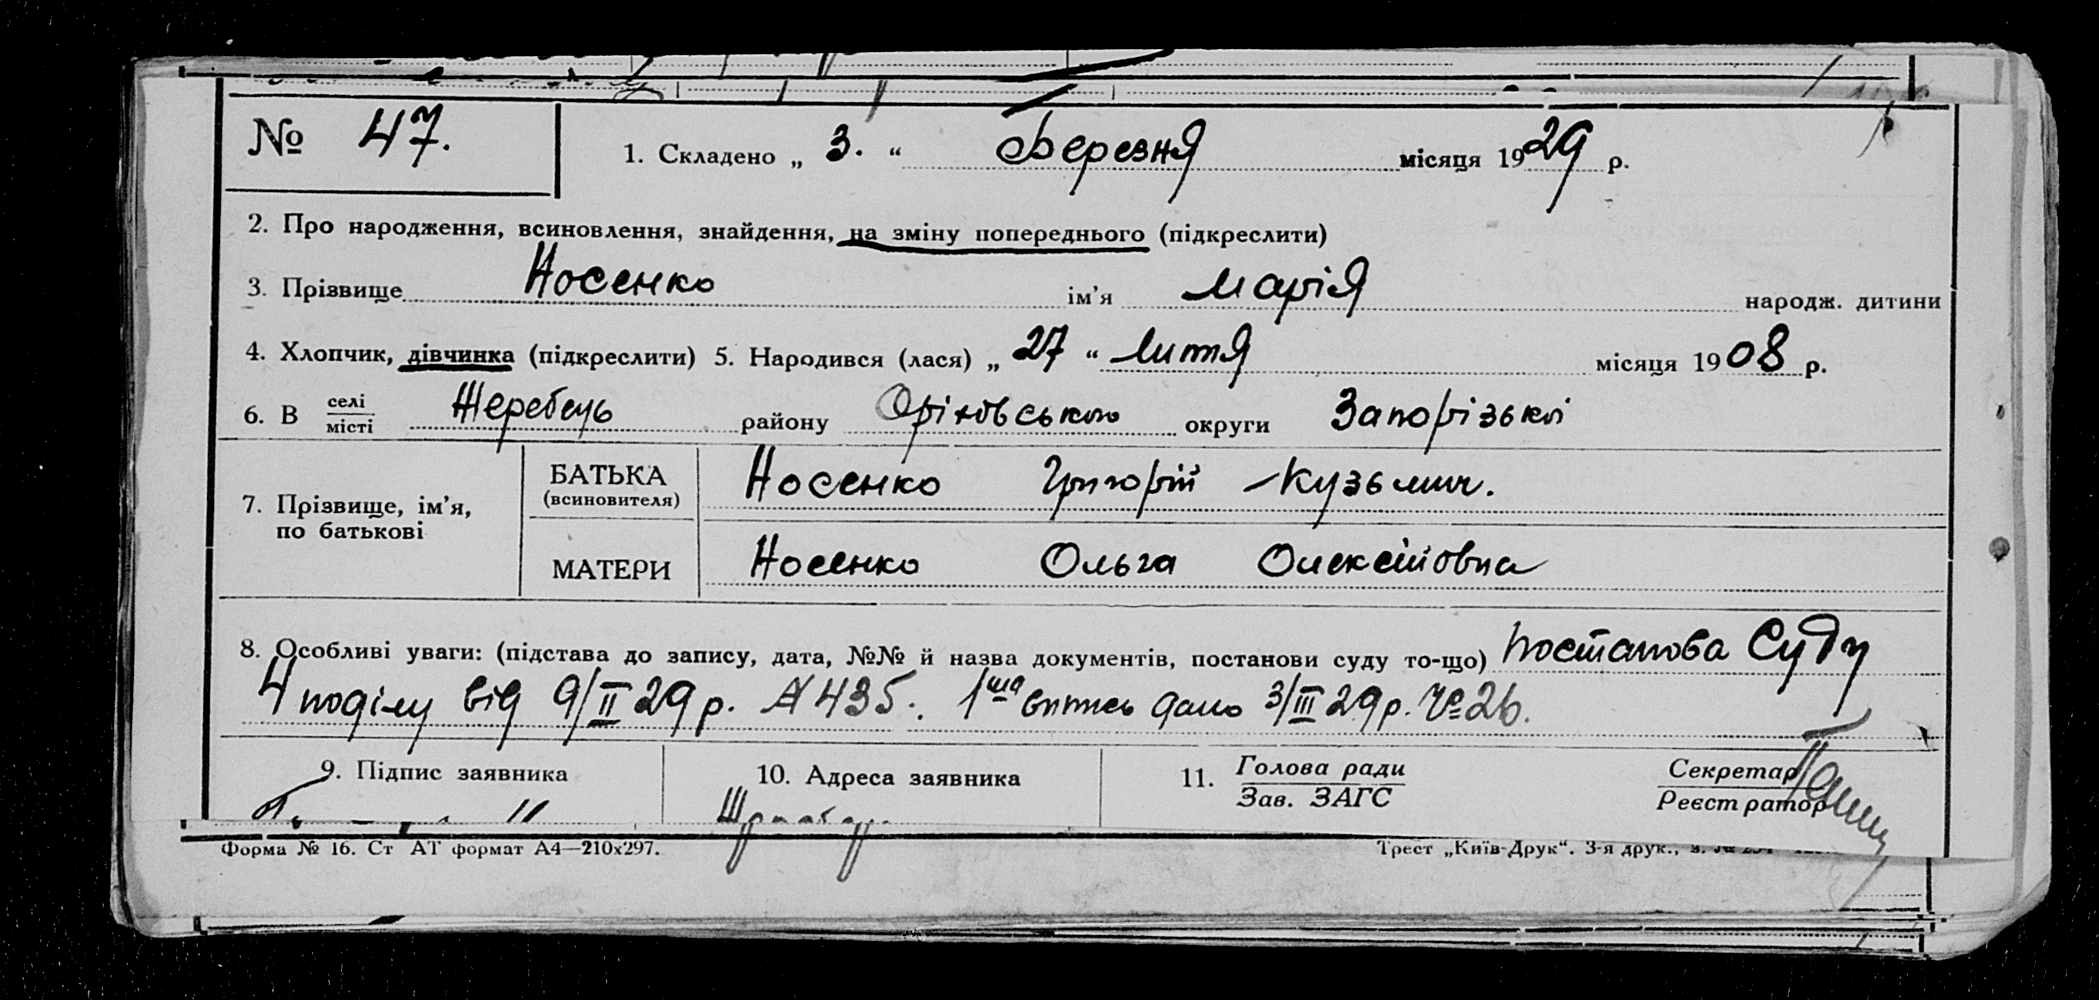 № 47. 1. Складено „ 3. “ Березня місяця 1929 р.
2. Про народження, всиновлення, знайдення, на зміну попереднього (підкреслити)
3. Прізвище Носенко ім’я Марія народж. дитини
4. Хлопчик, дівчинка (підкреслити) 5. Народився (лася) „ 27 “ Лютя місяця 1908 р.
6. В селі місті Жеребець району Оріхівського округи Запорізької
7. Прізвище, ім’я, по батькові
БАТЬКА (всиновителя) Носенко Григорій Кузьмич.
МАТЕРИ Носенко Ольга Олексіїовна
8. Особливі уваги: (підстава до запису, дата, №№ й назва документів, постанови суду то-що) Постанова Суду
4 поділу від 9/II 29 р. № 435. 1ша випись дано 3/III 29 р. № 26.
9. Підпис заявника 10. Адреса заявника 11. Голова ради Секретар
Зав. ЗАГС Реєстратор
Форма № 16. Ст АТ формат А4—210х297. Трест „Київ-Друк“. 3-я друк.,